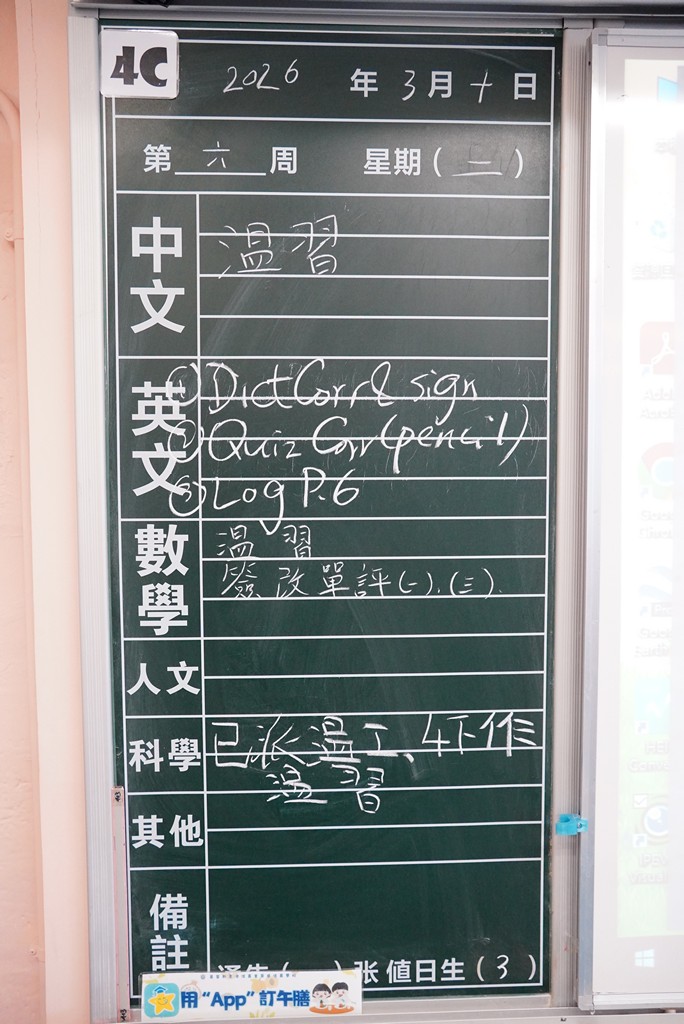 4C
2026年3月十日
第六周 星期(二)
中文
溫習
英文
①Dict Corr & sign
②Quiz Corr(pencil)
③Log P.6
數學
溫習
簽改單評(一).(三).
人文
科學
已派溫工、4下作
溫習
其他
備註
通告( )张 值日生(3)
用“App”訂午膳